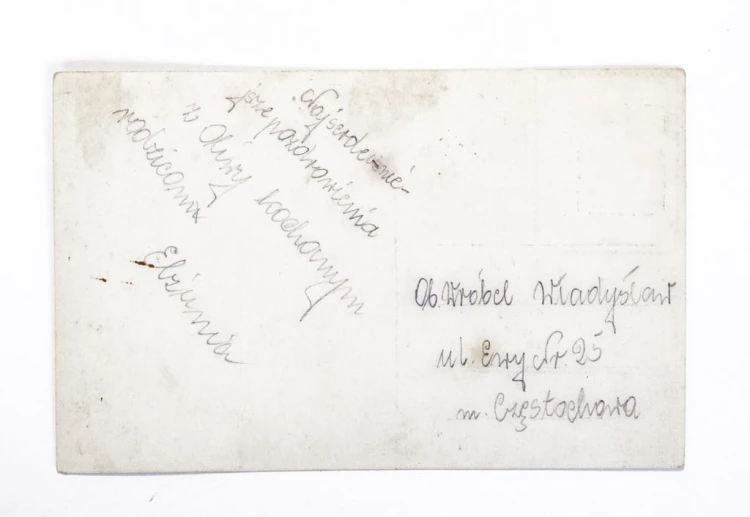 Najserdecznie-
jsze pozdrowienia
z Oliwy kochanym
rodzicom
Elżunia
Ob. Wróbel Władysław
ul. Ewy Nr. 25
m. Częstochowa